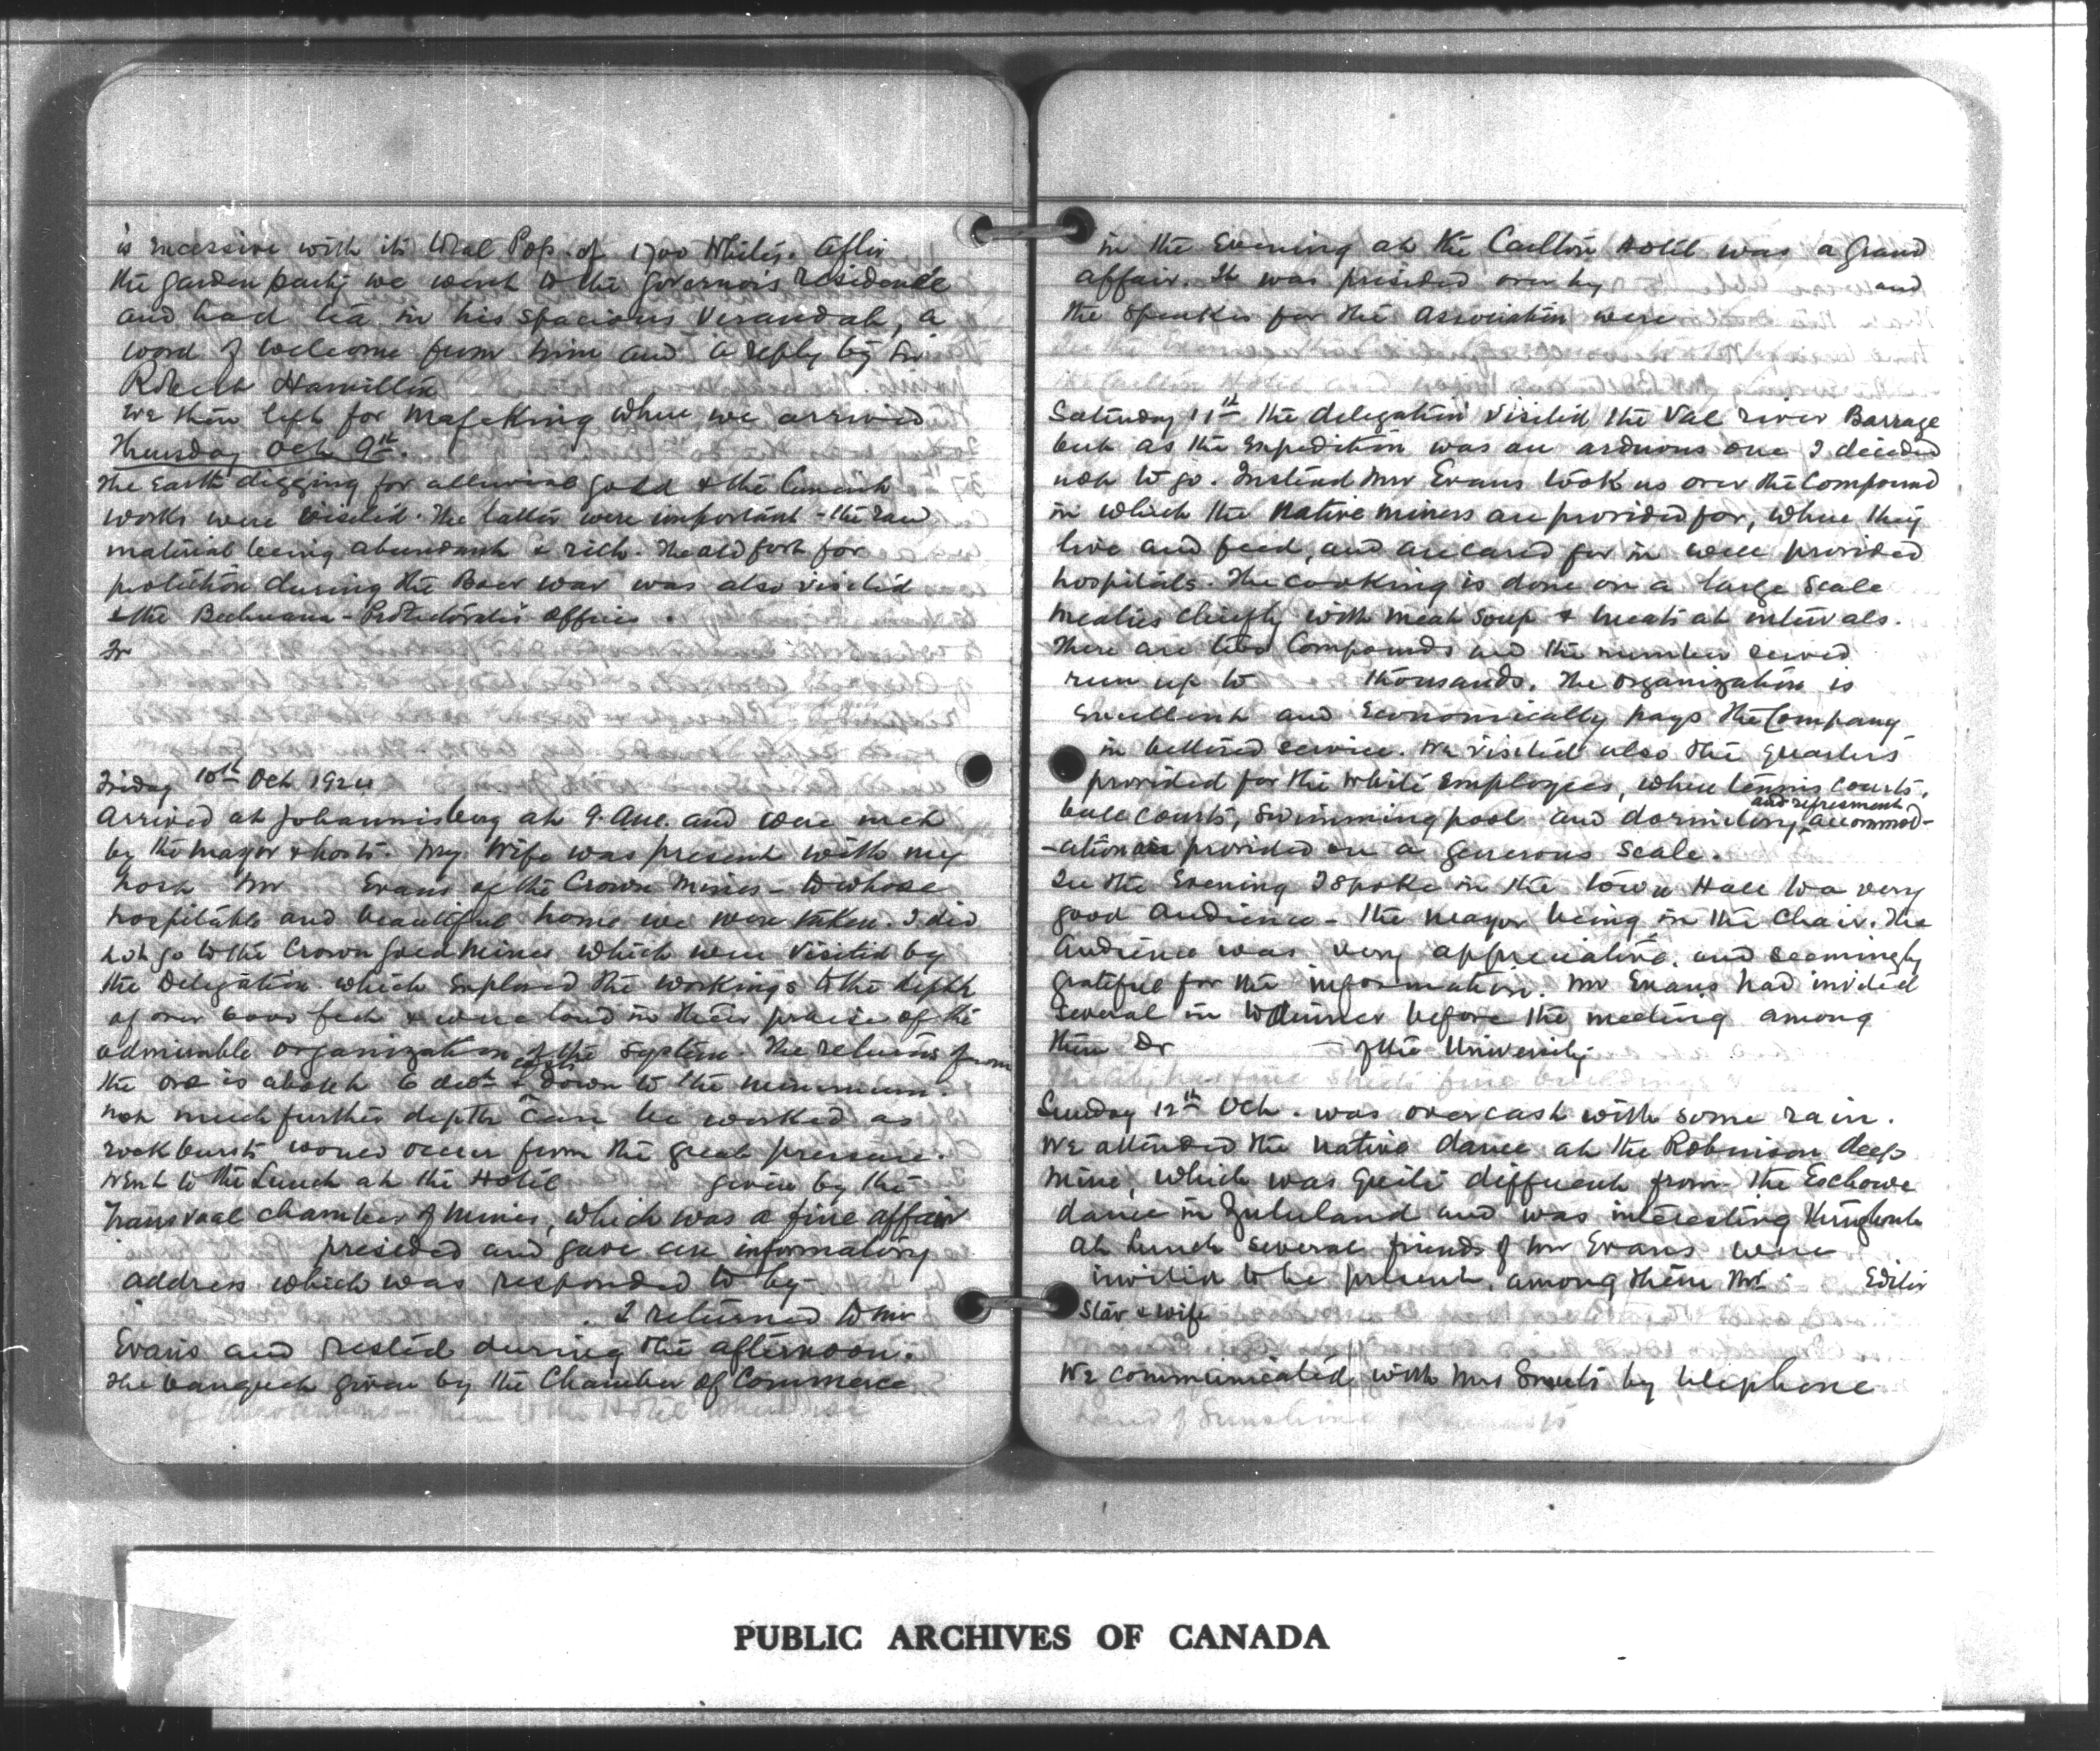 is excessive with its total Pop. of 1700 Whites. After
the garden party we went to the governor's residence
and had tea in his spacious Verandah, a
word of welcome from him and a reply by Sir
Robert Hamilton
We then left for Mafeking where we arrived
Thursday Oct 9th.
The Earth digging for alluvial gold & the Cement
works were visited. The latter were important - the raw
material being abundant & rich. The old fort for
protection during the Boer war was also visited
& the Bechuana - Protectorate's offices.
Fr
Friday 10th Oct 1924
Arrived at Johannisberg at 9. A.M. and were met
by the mayor & hosts. My Wife was present with my
host Mr Evans of the Crown Mines - to whose
hospitable and beautiful home we were taken. I did
not go to the Crown gold Mines which were visited by
the Delegation which explored the workings to the depth
of over 6000 feet & were loud in their praise of the
admirable organization of the system. The returns from
the ore is about 6 dwt & costs down to the minimum.
not much further depth can be worked as
rock bursts would occur from the great pressure.
Went to the Lunch at the Hotel given by the
Transvaal chamber of Mines, which was a fine affair
presided and gave an informatory
address which was responded to by
. I returned to Mr
Evans and rested during the afternoon.
The banquet given by the Chamber of Commerce
in the Evening at the Carlton Hotel was a grand
affair. It was presided over by and
the Speakers for the Association were
Saturday 11th the delegation visited the Val river Barrage
but as the expedition was an arduous one I decided
not to go. Instead Mr Evans took us over the Compound
in which the Native miners are provided for, where they
live and feed, and are cared for in well provided
hospitals. The cooking is done on a large scale
mealies chiefly with meat soup & meats at intervals.
There are two Compounds and the number served
run up to thousands. The organization is
excellent and economically pays the Company
in bettered service. We visited also the quarters
provided for the white employees, where tennis courts,
ball courts, swimming pool and dormitory and refresment accommod-
-ation are provided on a generous scale.
In the Evening I spoke in the Town Hall to a very
good audience - the mayor being in the chair. The
Audience was very appreciative. and seemingly
grateful for the information. Mr Evans had invited
several in to dinner before the meeting among
them Dr - of the University.
Sunday 12th Oct. was overcast with some rain.
We attended the native dance at the Robinson deep
mine, which was quite different from the Eschowe
dance in Zululand and was interesting throughout
At Lunch several friends of Mr Evans were
invited to be present, among them Mr. Editor
Star & wife
We communicated with Mrs Smuts by telephone
PUBLIC ARCHIVES OF CANADA